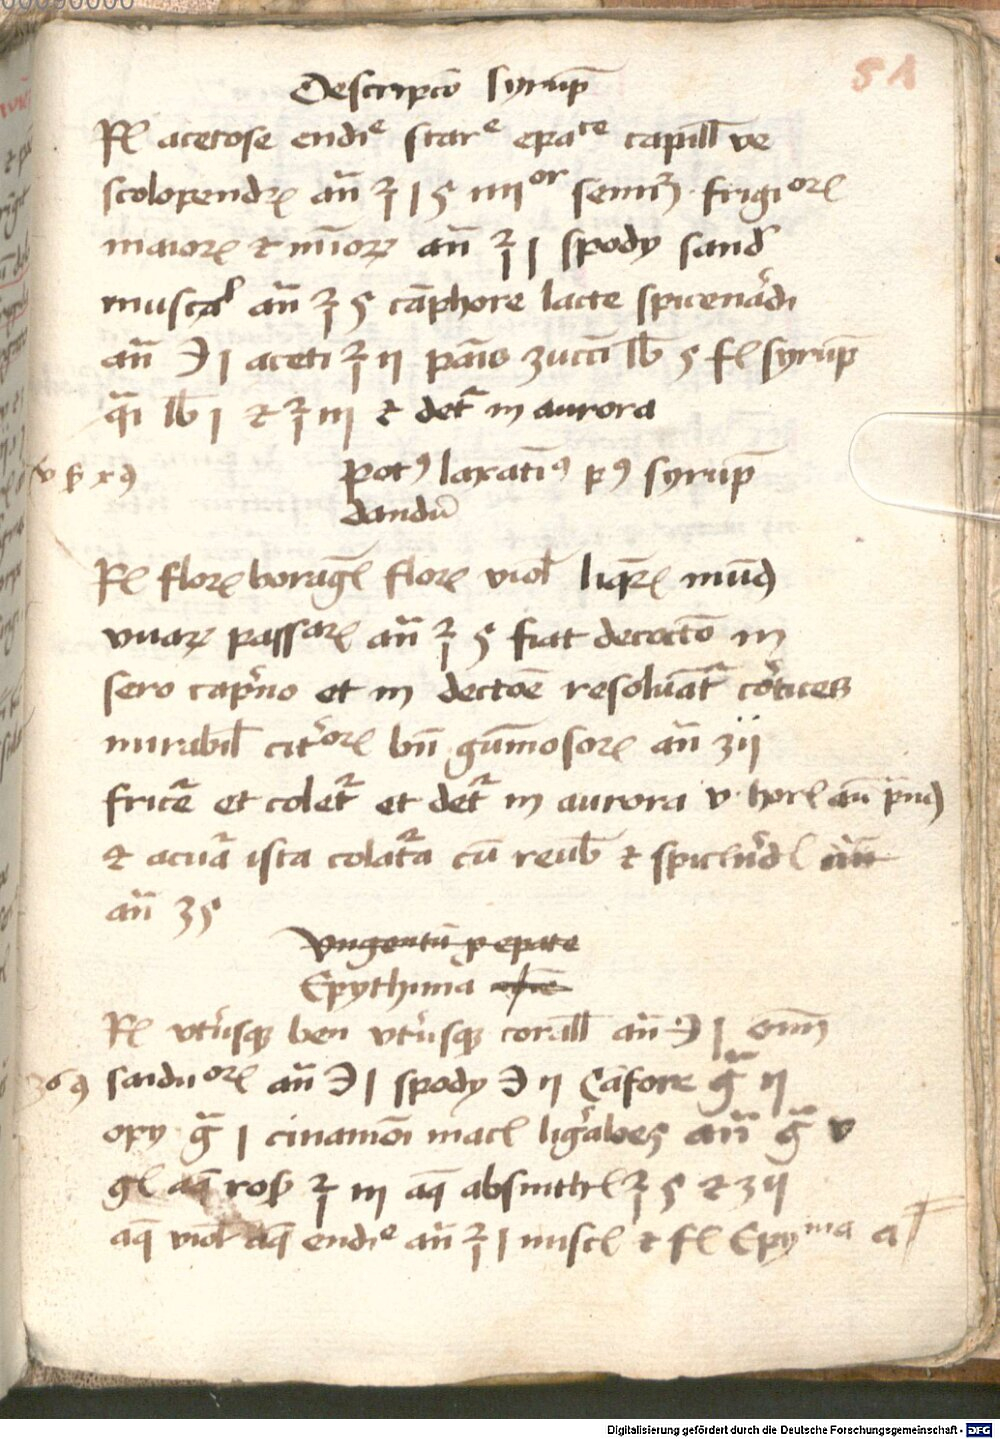 51
Descripcō syrup̄
R℞ acetose endiᵉ starᵉ epaᵗᵉ capill̄ ve
scolopendrꝭ an̄ ℥ 1 ʒ iiiiᵒʳ semīū frigiᵒʳꝭ
maiorꝭ ⁊ mīorꝝ an̄ ℥ j spody sand̄
muscal̄ an̄ ℥ ꭍ cāphore lacte spicenardi
an̄ ℈ j aceti ℥ ij panis zucc̄i lb̄ ꭍ fꝭ syrup̄
qāi lb̄ j ⁊ ℥ iij ⁊ det᷑ in aurora
potꝰ laxatīꝰ pꝰ syrup̄
dandū
R℞ florꝭ boragꝭ florꝭ viol̄ liqrꝭ mūd
vuarꝝ passarꝭ an̄ ℥ ꭍ fiat decoctō in
sero capͥno et in dectōe resoluāt᷑ cortices
mirabil̄ citͥorꝭ bn̄ gūmosorꝭ an̄ ʒ ij
frice᷑ et colet᷑ et det᷑ in aurora v horꝭ an̄ prnd
⁊ acua᷑ ista colat᷑a cū reub̄ ⁊ spicnardꝭ
an̄ ʒ ꭍ
Vngentū p epate
Epythima
R℞ vtriusqꝫ ben vtriusqꝫ corall̄ an̄ ℈ j om̄
sanduorꝭ an̄ ℈ j spody ℈ ij Cāfore ḡ ij
opy ḡ j cinamōi macꝭ lignaloes an̄ ḡ v
aq̄ ros̄ ℥ iij aq̄ absinthꝭ ℥ ꭍ ⁊ ʒ ij
aq̄ viol̄ aq̄ endiᵉ an̄ ℥ j miscꝭ ⁊ fꝭ Epyᵐᵃ
Digitalisierung gefördert durch die Deutsche Forschungsgemeinschaft - DFG